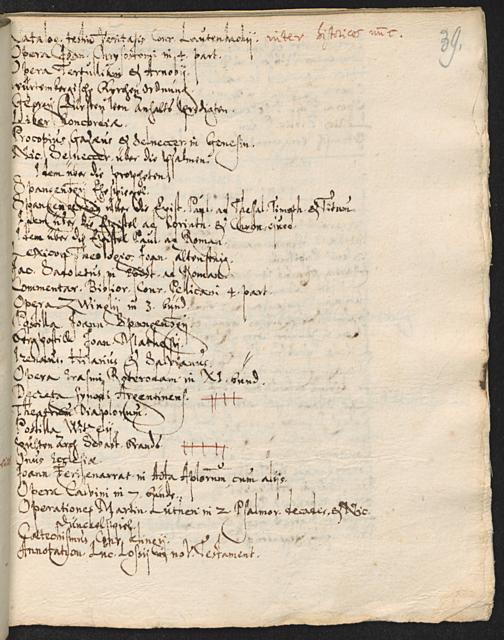 39.
Catalog. testium Veritatis Conr. Lautenbachij. inter historicos
Opera Joan. Chrysostomi in 4. part.
Opera Tertulliani et Arnobij
Wirtembergisch Kyrchen Ordnung
Georgij Fürsten von Anhalts Predigten.
Liber Concordiae
Procopius Gazaeus et Selneccer in Genesin.
Nic. Selneccer über die Psalmen
Idem über die Propheten
Spangenberg
Spangenberg über die Epist. Pauli ad Thessal. Timoth. et Titum
Idem über die Epistel ad Corinth.
Idem über die Epistel Pauli ad Roman.
Lexicon Theologic. Joan. Altenstaig.
Jac. Sadoletus in ad Roman
Commentar. Biblior. Conr. Pellicani 4. part
Opera Zwinglij in 3. bund
Postilla Joann Spangenberg
Joan Mathesij
Irenaeus, Hilarius et
Opera Erasmi Roterodam in XI. bund.
Decreta Synodi Argentinens.
Theatrum Diabolorum.
Postilla
Sebast. Brands
Ecclesiae
Joann in Acta Aplorum cum alijs.
Opera Calvini in 7 bund.
Operationes Martin. Lutheri in 2 Psalmor. decades, et Nic.
Catechismus
Annotation. Luc. Lossij in nov. Testament.